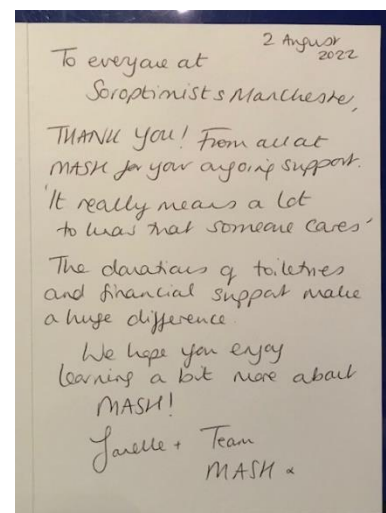 2 August
2022
To everyone at
Soroptimists Manchester,
THANK YOU! From all at
MASH for your ongoing support.
'It really means a lot
to know that someone cares'
The donations of toiletries
and financial support make
a huge difference.
We hope you enjoy
learning a bit more about
MASH!
+ Team
MASH x